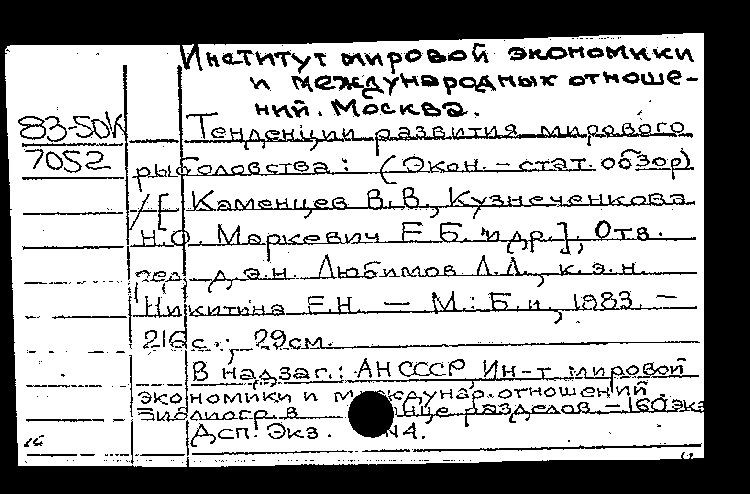 Институт мировой экономики
и международных отноше-
ний. Москва.
83-50К
Тенденции развития мирового
7052
рыболовства: (Экон.-стат. обзор)
/[Каменцев В.В., Кузнеченкова
Н.О. Маркевич Е.Б. и др.]; Отв.
ред. д.э.н. Любимов Л.Л., к.э.н.
Никитина Е.Н. — М.: Б.и., 1983. —
216с.; 29см.
В надзаг.: АН СССР, Ин-т мировой
экономики и междунар. отношений.
Библиогр. в разделов. — 160экз
Дсп. Экз. N4.
16